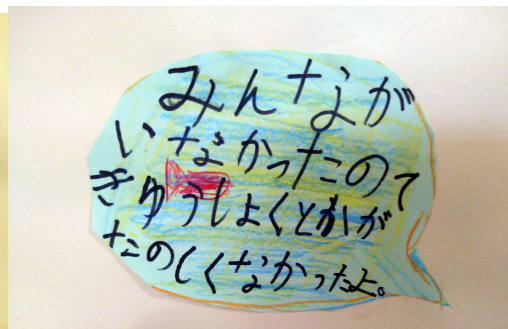 みんなが
いなかったのて
ぎゅうしょくとかが
たのしくなかったよ。